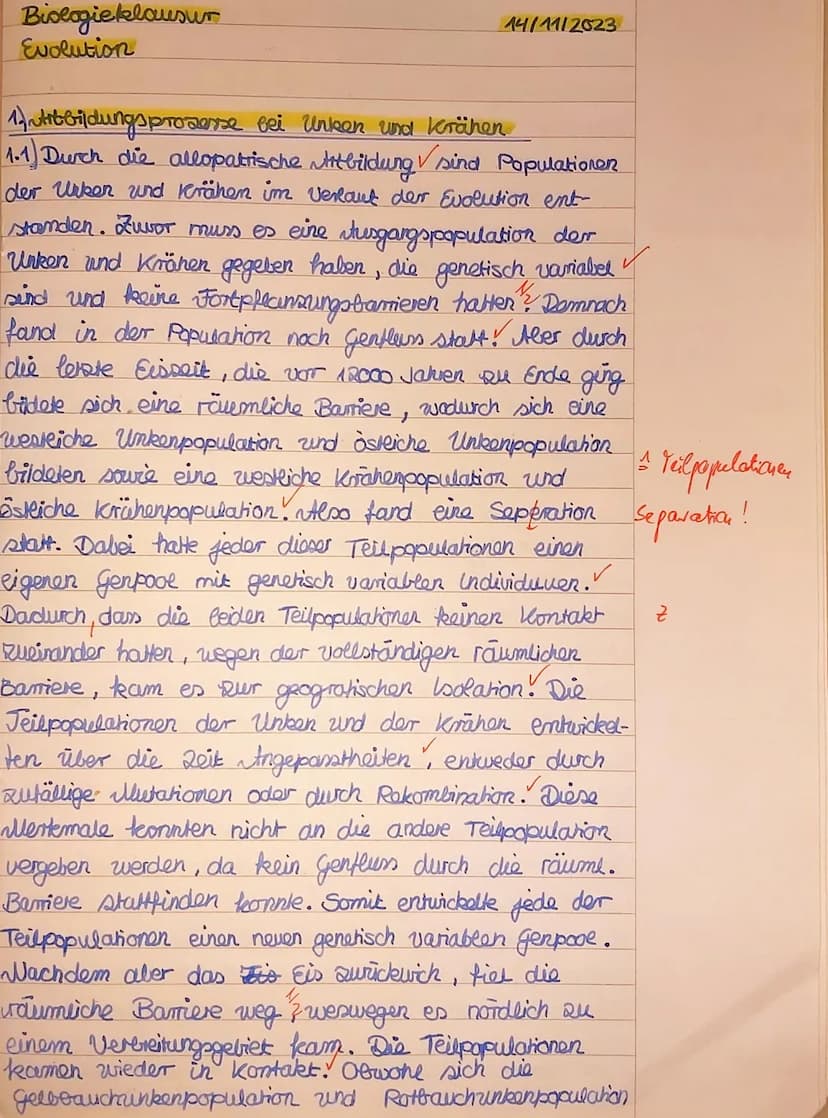 Biologieklausur 14/11/2023
Evolution
1.) Artbildungsprozesse bei Unken und Krähen
1.1) Durch die allopatrische Artbildung ✓ sind Populationen
der Unken und Krähen im Verlauf der Evolution ent-
standen. Zuvor muss es eine Ausgangspopulation der
Unken und Krähen gegeben haben, die genetisch variabel ✓
sind und keine Fortpflanzungsbarrieren hatten. Demnach
fand in der Population noch Genfluss statt. ✓ Aber durch
die letzte Eiszeit, die vor 12000 Jahren zu Ende ging
bildete sich eine räumliche Barriere, wodurch sich eine
westliche Unkenpopulation und östliche Unkenpopulation
bildeten sowie eine westliche Krähenpopulation und ≙ Teilpopulationen
östliche Krähenpopulation. ✓ Also fand eine Seperation Separation!
statt. Dabei hatte jeder dieser Teilpopulationen einen
eigenen Genpool mit genetisch variablen Individuuen. ✓
Dadurch, dass die beiden Teilpopulationen keinen Kontakt z
zueinander hatten, wegen der vollständigen räumlichen
Barriere, kam es zur geografischen Isolation. ✓ Die
Teilpopulationen der Unken und der Krähen entwickel-
ten über die Zeit Angepasstheiten ✓, entweder durch
zufällige Mutationen oder durch Rekombination. ✓ Diese
Merkmale konnten nicht an die andere Teilpopulation
vergeben werden, da kein Genfluss durch die räuml.
Barriere stattfinden konnte. Somit entwickelte jede der
Teilpopulationen einen neuen genetisch variablen Genpool.
Nachdem aber das Eis zurückwich, fiel die
räumliche Barriere weg, weswegen es nördlich zu
einem Verbreitungsgebiet kam. Die Teilpopulationen
kamen wieder in Kontakt. ✓ Obwohl sich die
Gelbbauchunkenpopulation und Rotbauchunkenpopulation